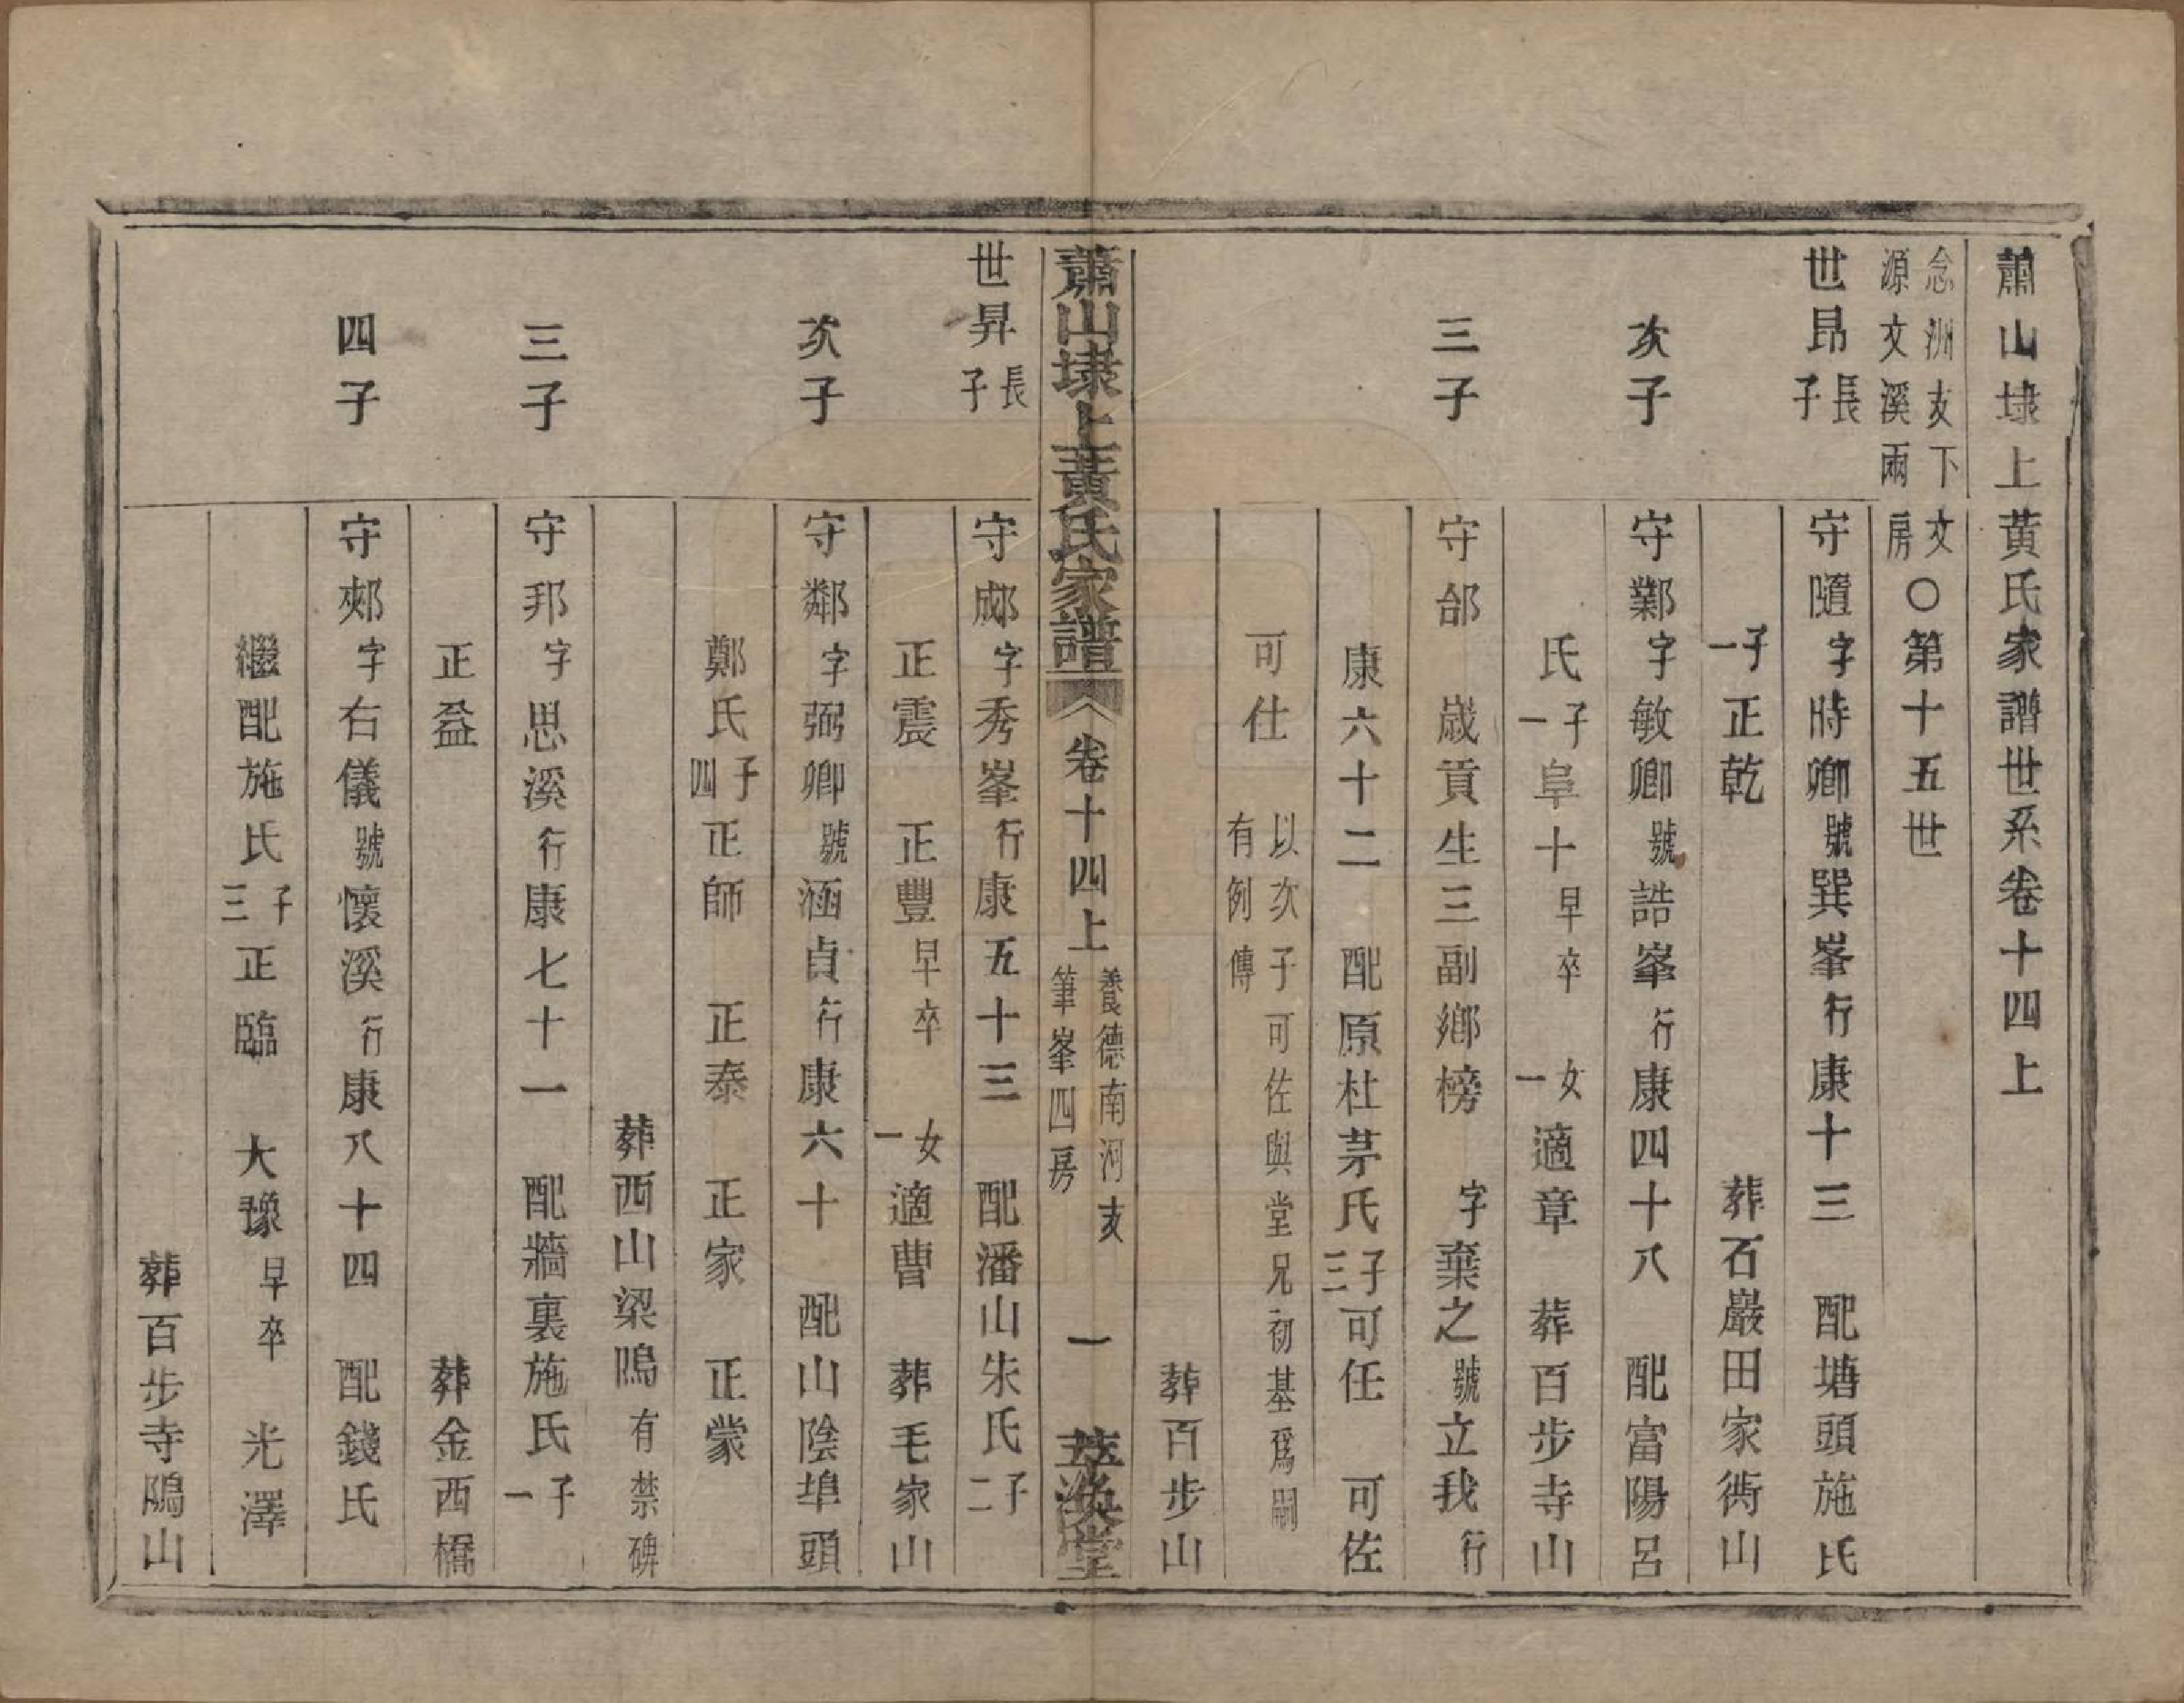 蕭山埭上黃氏家譜世系卷十四上
念洲支下文源文溪兩房〇第十五世
世昂長子 守隨字時卿號巽峯行康十三 配塘頭施氏
子一正乾 葬石巖田家衖山
次子 守鄴字敏卿號誥峯行康四十八 配富陽呂
氏子一阜十早卒 女一適章 葬百步寺山
三子 守郃 歲貢生三副鄉榜 字棄之號立我行
康六十二 配原杜茅氏子三可任 可佐
可仕以次子可佐與堂兄初基爲嗣有例傳
葬百步山
蕭山埭上黃氏家譜 卷十四上 養德南河支筆峯四房 一 萃渙堂
世昇長子 守郕字秀峯行康五十三 配潘山朱氏子二
正震 正豐早卒 女一適曹 葬毛家山
次子 守鄰字弼卿號涵貞行康六十 配山陰埠頭
鄭氏子四正師 正泰 正家 正蒙
葬西山梁隖有禁碑
三子 守邦字思溪行康七十一 配牆裏施氏子一
正益 葬金西橋
四子 守郟字右儀號懷溪行康八十四 配錢氏
繼配施氏子三正臨 大豫早卒 光澤
葬百步寺隖山